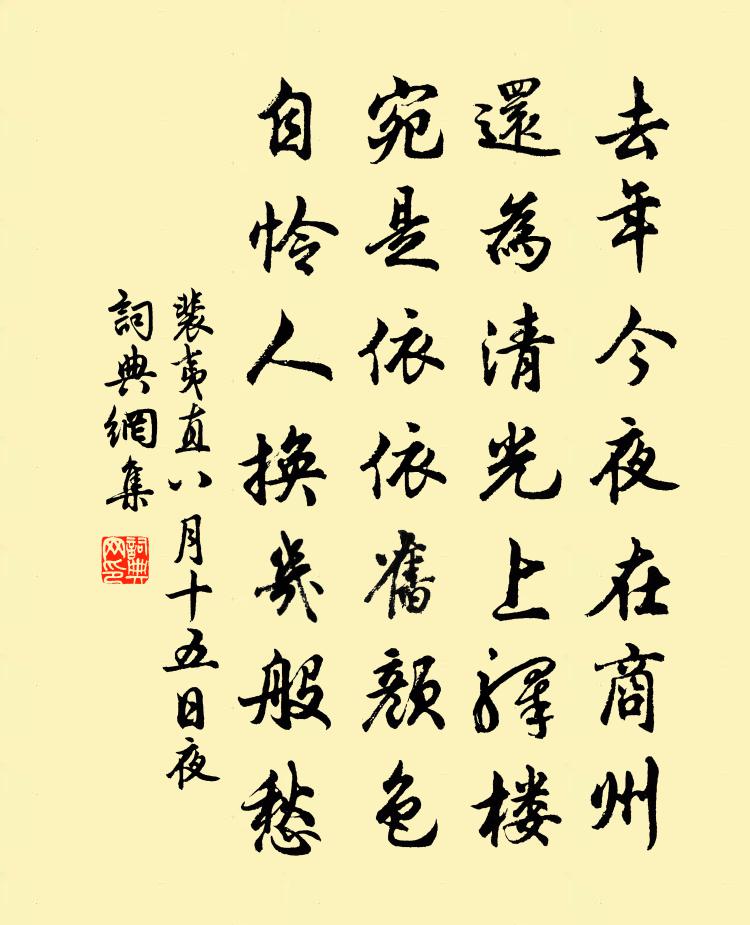 去年今夜在商州
還為清光上驛楼
宛是依依舊顏色
自怜人換幾般愁
裴夷直八月十五日夜
詞典網集
詞典
网印